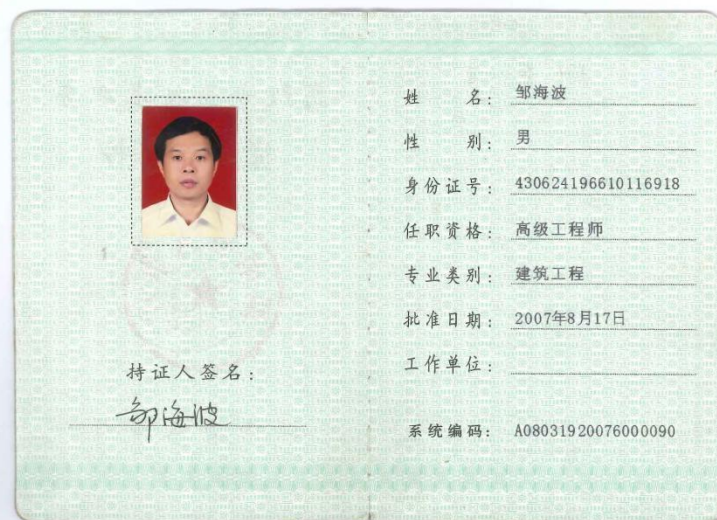 持证人签名:
邹海波
姓 名: 邹海波
性 别: 男
身份证号: 430624196610116918
任职资格: 高级工程师
专业类别: 建筑工程
批准日期: 2007年8月17日
工作单位:
系统编码: A08031920076000090